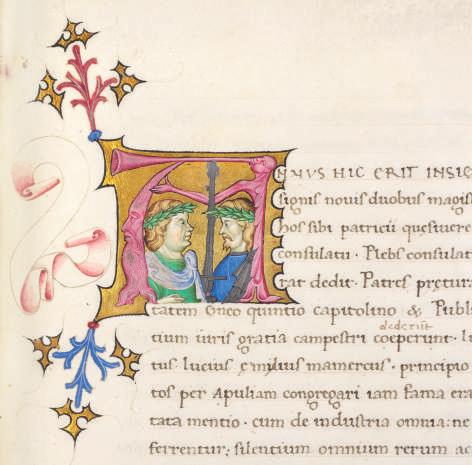 ANNVS HIC ERIT INSIG
signis nouis duobus magis
hos sibi patricii quesiuere
consulatu. Plebs consulat
rat dedit. Patres pretura
tatem Gneo quintio capitolino & Publ
dederut
tium iuris gratia campestri coeperunt. lu
tus. lucius emilius mamercus. principio
tos per Apuliam congregari iam fama era
tata mentio. cum de industria omnia: ne
ferrentur: silentium omnium rerum ac